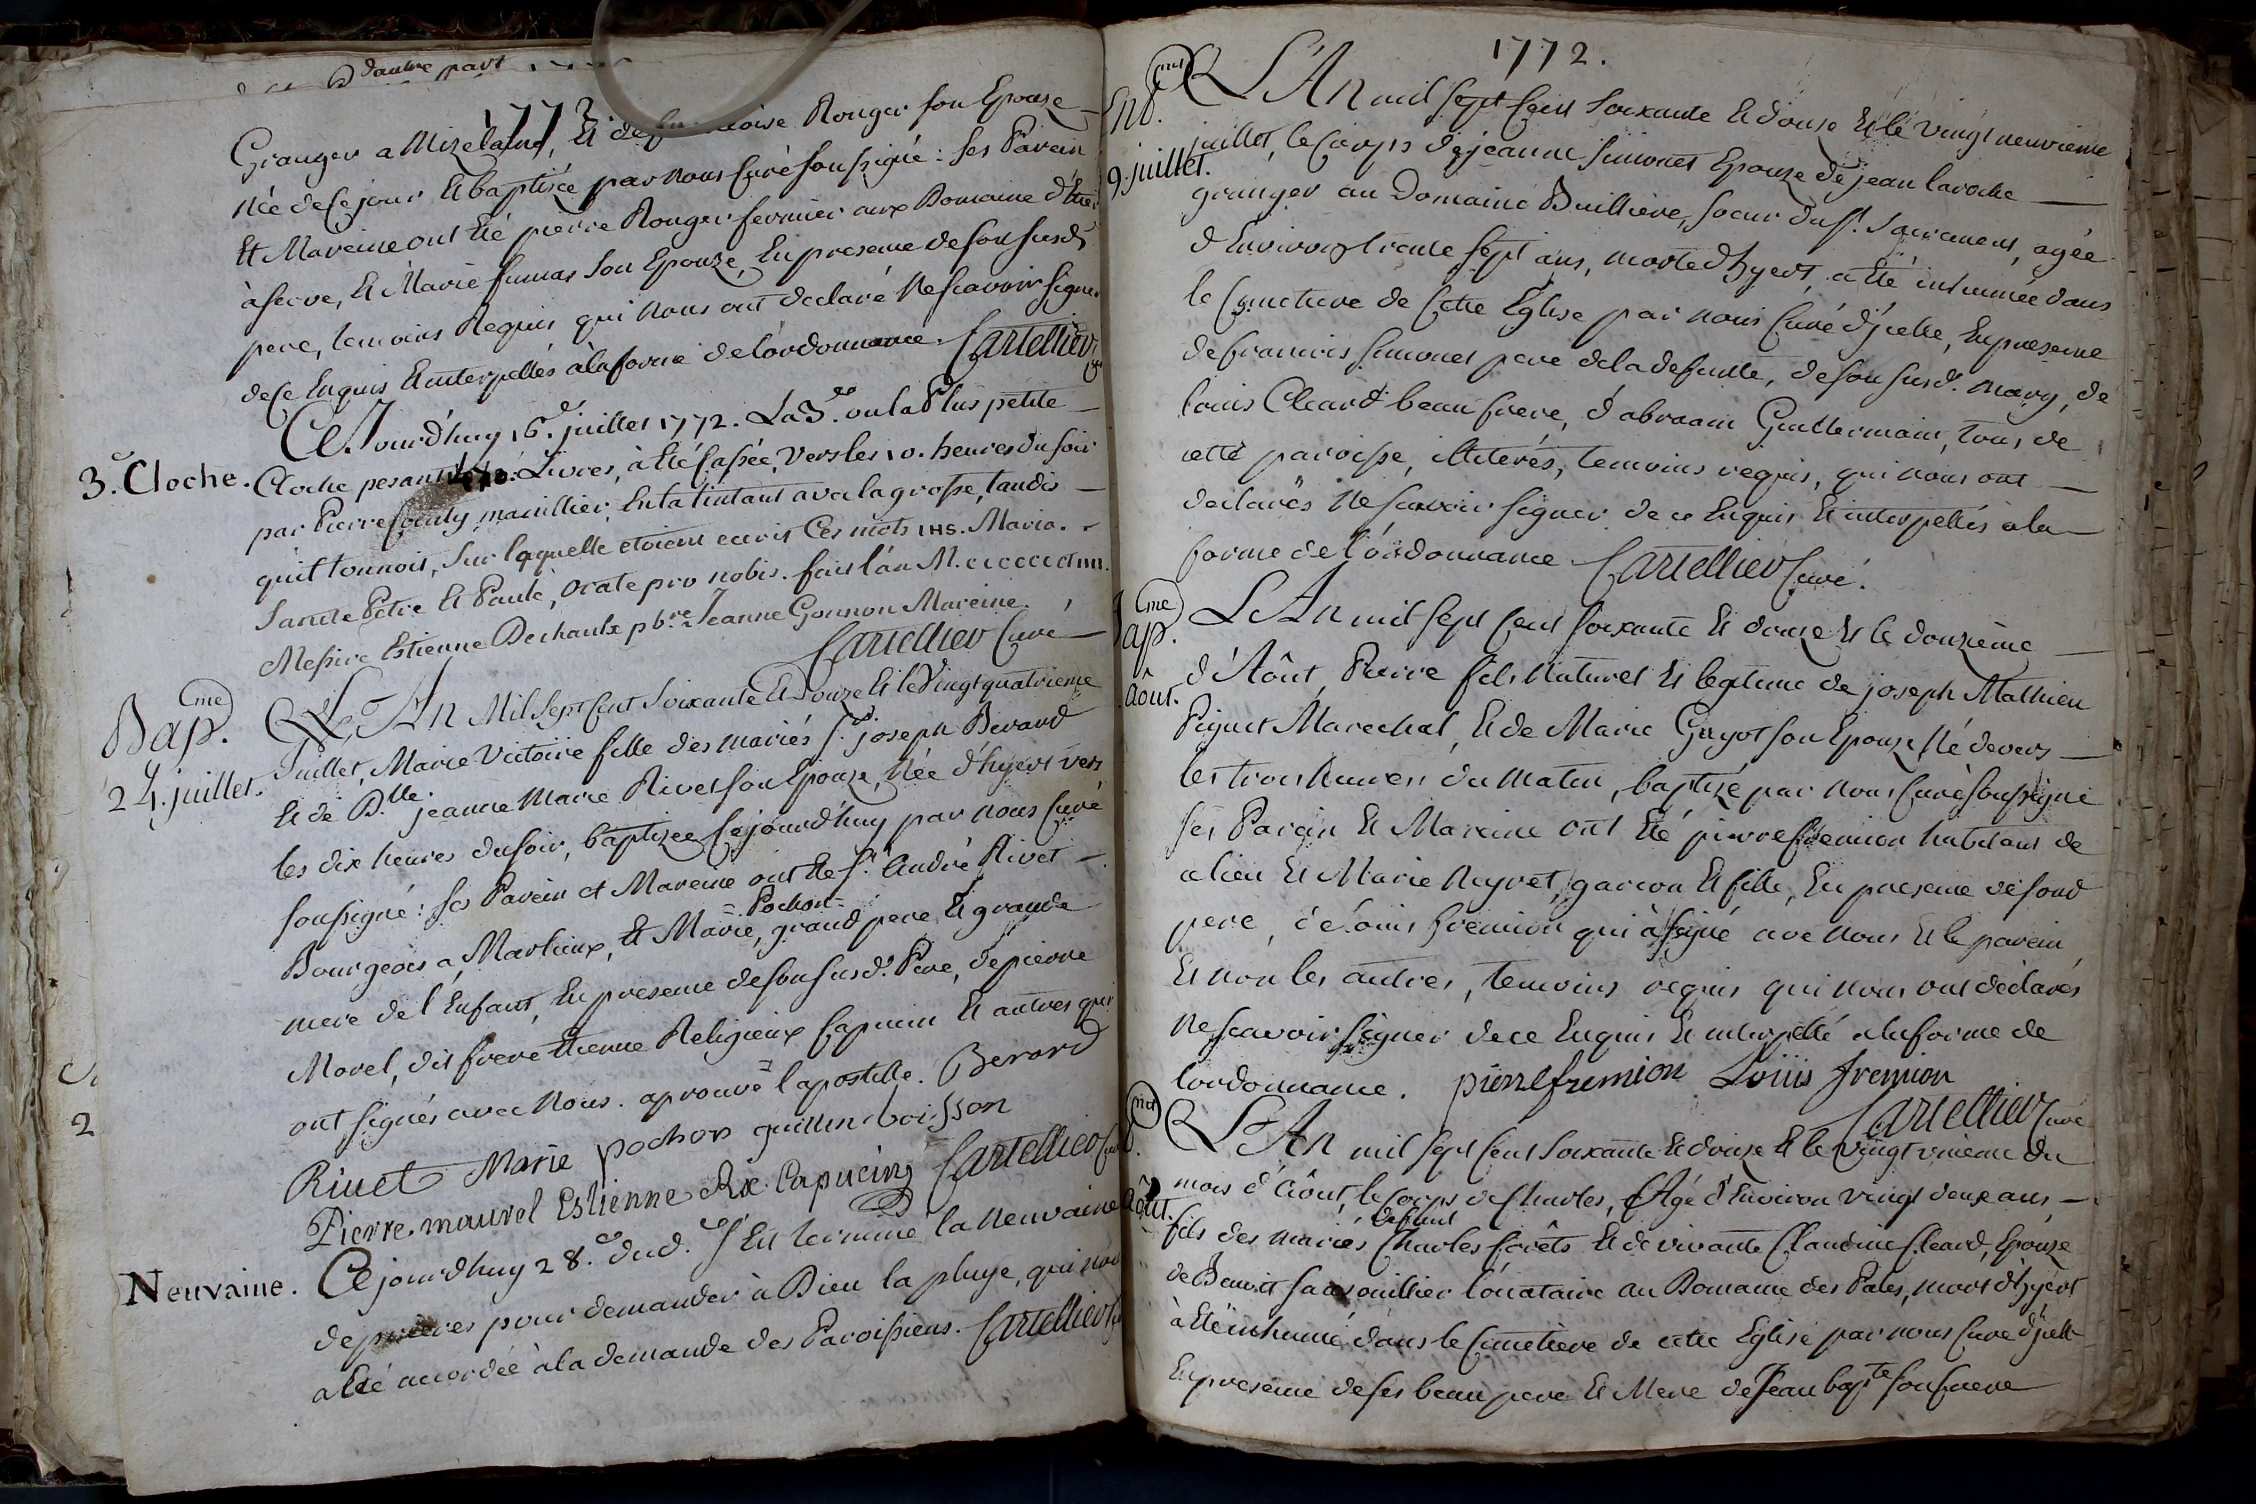 d'autre part
1772
Granger a Mizelaine, Et de Rouger son Epouze
Née de ce jour Et baptisée par nous Curé soussigné : ses Parein
Et Mareine ont Eté pierre Rouger fermier aux Domaine
à serve, Et Marie fumas son Epouze, En presence de son susdt
pere, temoins Requis qui nous ont declaré Ne scavoir signer
de ce Enquis Et interpellés à la forme de l'ordonnance. Cartellier
3.e Cloche.
Ce Jourd'huy 16.e juillet 1772. La 3.e ou la Plus petite
Cloche pesant Livres, à Eté Cassée, Vers les 10. heures du soir
par Pierre manillier, En la tintant avec la grosse, tandis
qu'il tonnoit, Sur laquelle etoient ecris Ces mots IHS. Maria.
Sancte Petre Et Paule, orate pro nobis. fait l'an M.
Messire Estienne Dechaulx pbre Jeanne Gonnon Mareine.
Cartellier Curé
Bapme.
24. juillet.
L'An Mil Sept Cent Soixante Et Douze Et le Vingt quatrieme
Juillet, Marie Victoire fille des mariés sr. joseph Berard
Et de Dlle. jeanne Marie Rivet son Epouze, Née d'hyert vers
les dix heures du soir, baptizee Cejourd'huy par nous Curé
soussigné : ses Parein et Mareine ont Eté sr. André Rivet
= Pochon =
Bourgeois a Marlieux, Et Marie, grand pere Et grande
mere de l'Enfant, En presence de son susd. Pere, de pierre
Morel, dit frere Etienne Religieux Capucin Et autres qui
ont signés avec Nous. aprouvé l'apostille. Berard
Rivet Marie pochon guillin boisson
Pierre. maurel Estienne Rx. Capucin Cartellier Curé
Neuvaine.
Ce jourd'huy 28.e dud. s'Est terminé la Neuvaine
de prieres pour demander à Dieu la pluye, qui nous
a Eté accordée à la demande des Paroissiens. Cartellier
1772.
Entmt.
9. juillet.
L'An mil sept Cent Soixante Et douze Et le vingt neuvieme
juillet, le Corps de jeanne simonet Epouze de jean laroche
granger au Domaine Builliere, soeur du st. Sacrement, agée
d'Environ trente sept ans, morte d'hyert, a Eté inhumée dans
le Cymetiere de Cette Eglise par nous Curé d'jcelle, En presence
de francois simonet pere de la defuncte, de son susd. mary, de
louis Cleard beau frere, d'abraam Guillermain, tous de
cette paroisse, illiterés, temoins requis, qui nous ont
declarés Ne scavoir signer de ce Enquis Et interpellés a la
forme de l'ordonnance Cartellier Curé.
Bapme.
Aôut.
L'An mil sept Cent soixante Et douze Et le douzieme
d'Aôut, Pierre fils Naturel Et legitime de joseph Mathieu
Piquet Marechal, Et de Marie Guyot son Epouze, Né devers
les trois heures du matin, baptizé par nous Curé soussigné
ses Parein Et Mareine ont Eté pierre fremion habitant de
a lieu Et Marie Neyret, garcon Et fille, En presence de soud
pere, de Louis fremion qui à signé avec nous Et le parein
Et non les autres, temoins requis qui nous ont déclarés
Ne scavoir signer de ce Enquis Et interpellé a la forme de
lordonnance. pierre fremion Louiis fremion
Cartellier Curé
Aôut.
L'An mil sept Cent soixante Et douze Et le Vingt unieme du
mois d'aôut, le Corps de Charles, Agé d'Environ vingt deux ans,
defunt
fils des mariés Charles Forêts Et de vivante Claudine Cleard, Epouze
de Benoit locataire au Domaine des Pales, mort d'hyert
à Eté inhumé dans le Cimetiere de cette Eglise par nous Curé d'jcelle
En presence de ses beau pere Et Mere de Jean bapte. son frere